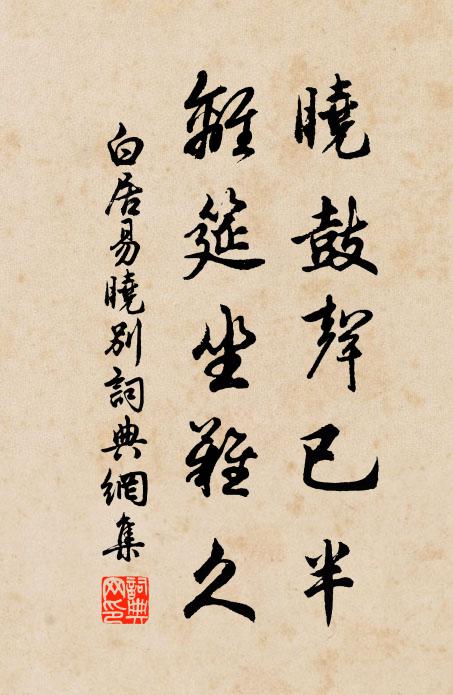 曉鼓聲已半
離筵坐難久
白居易曉別詞典網集
詞典網印